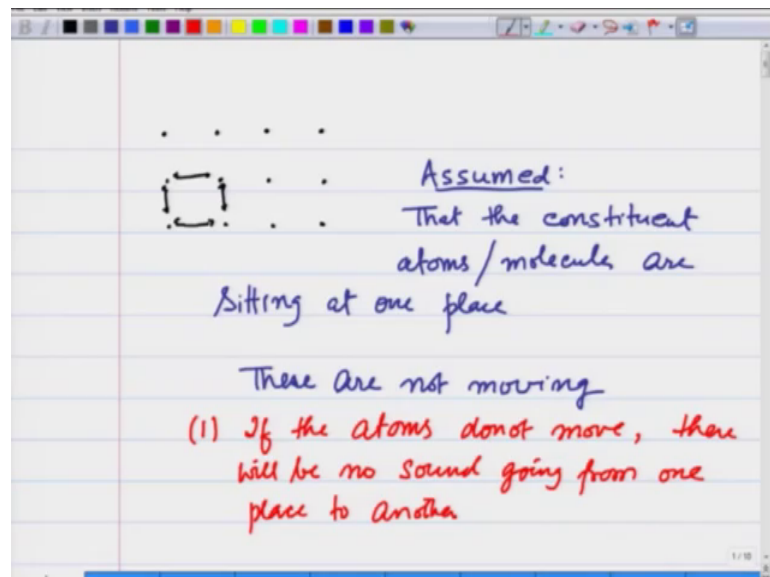 Assumed:
That the constituent
atoms/molecules are
sitting at one place
These are not moving
(1) If the atoms donot move, there
will be no sound going from one
place to another
1/18